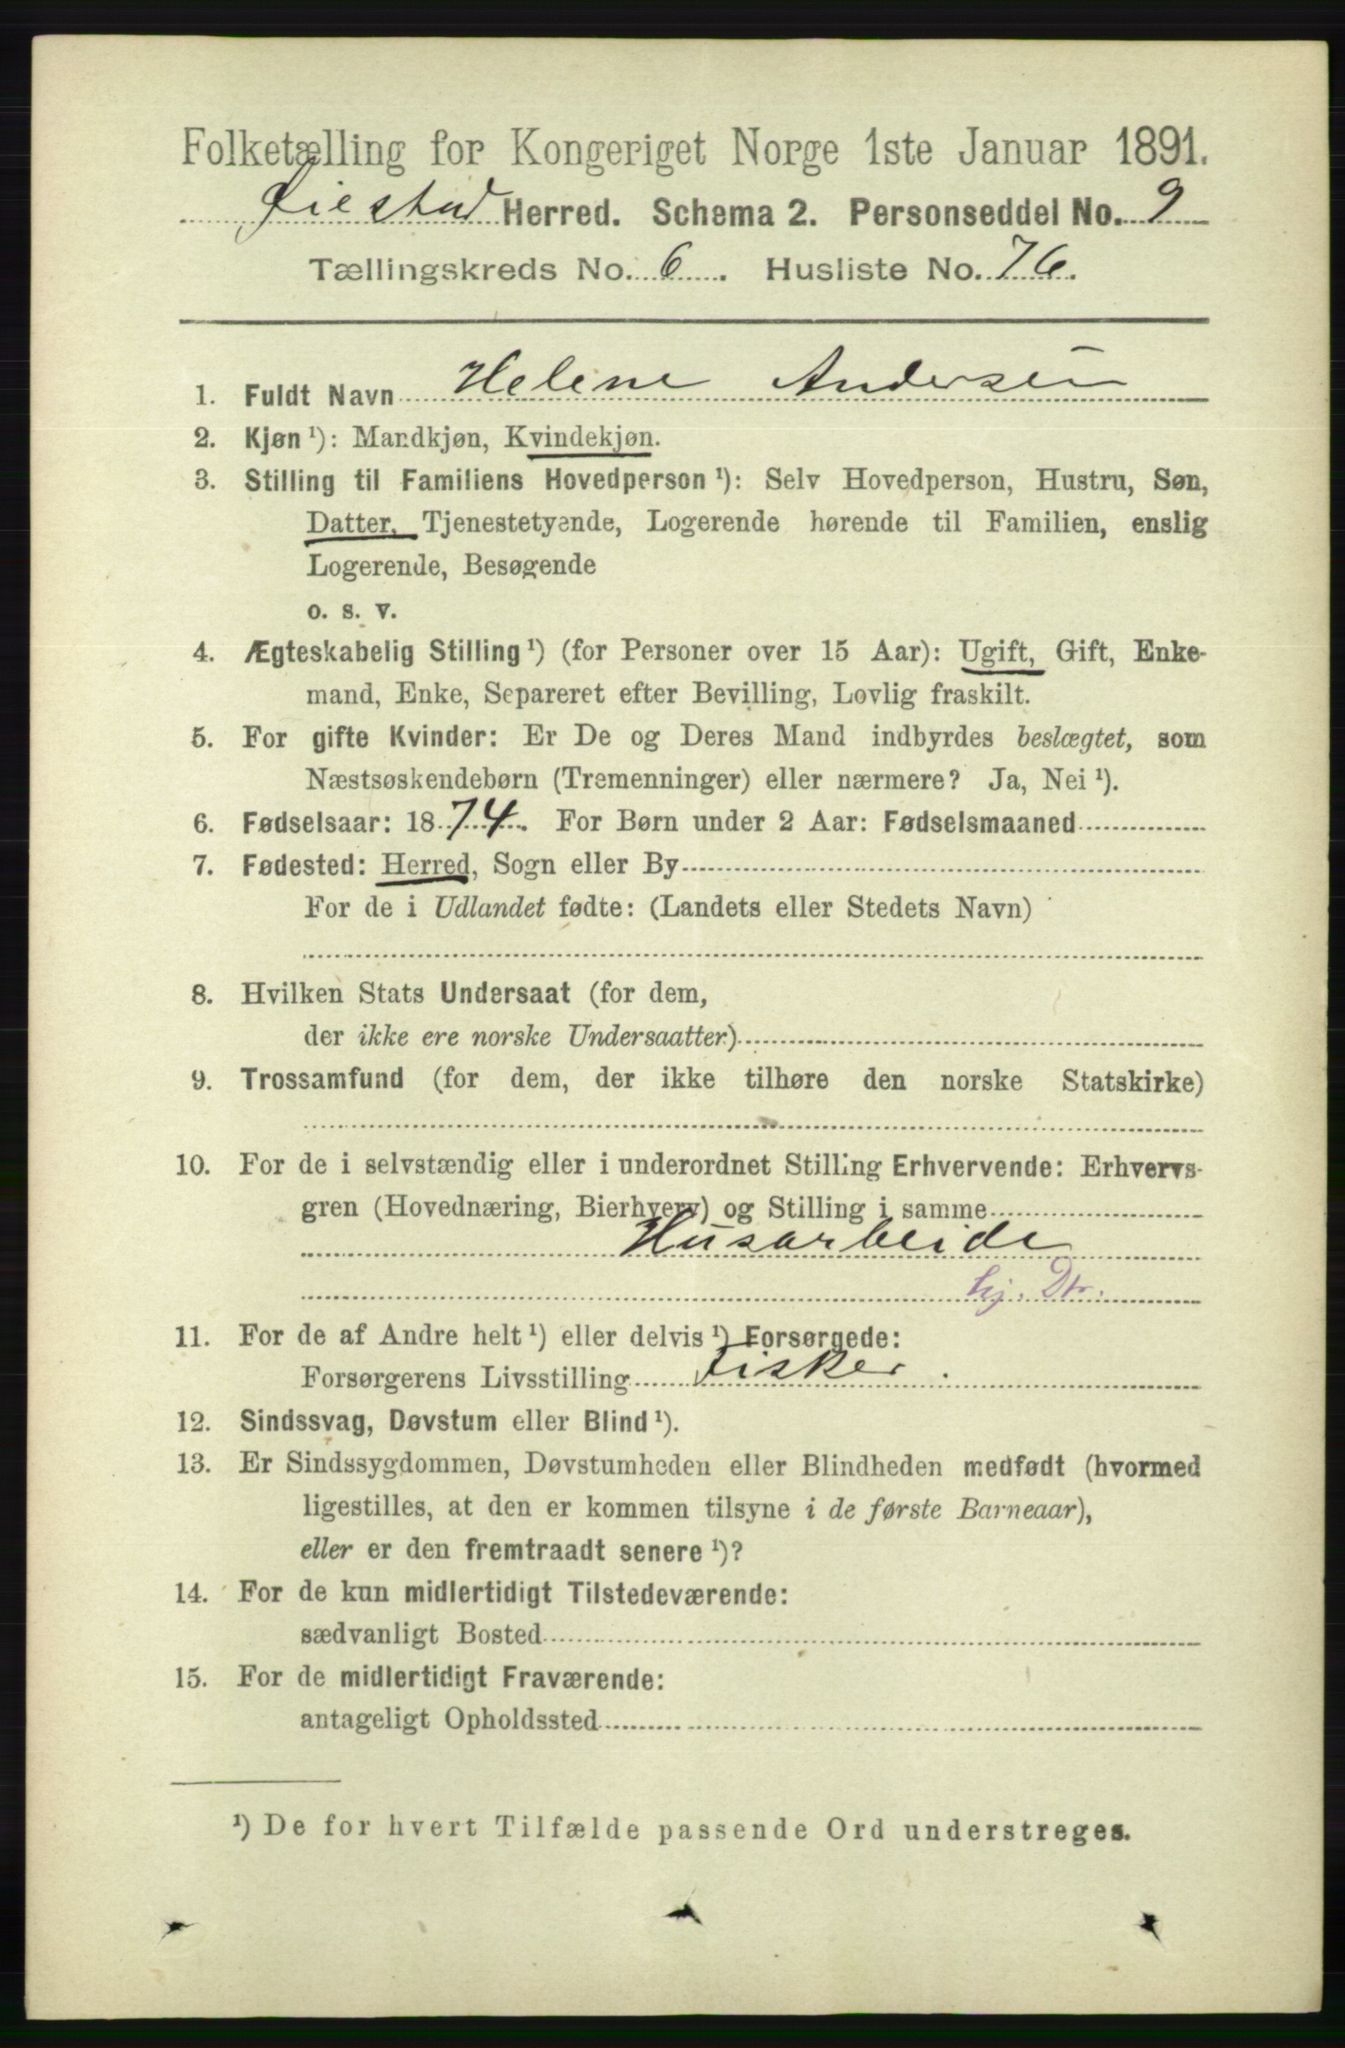 Folketælling for Kongeriget Norge 1ste Januar 1891.
Øiestad Herred. Schema 2. Personseddel No. 9
Tællingskreds No. 6. Husliste No. 76.
1. Fuldt Navn Helene Andersen
2. Kjøn ¹): Mandkjøn, Kvindekjøn.
3. Stilling til Familiens Hovedperson ¹): Selv Hovedperson, Hustru, Søn,
Datter, Tjenestetyende, Logerende hørende til Familien, enslig
Logerende, Besøgende
o. s. v.
4. Ægteskabelig Stilling ¹) (for Personer over 15 Aar): Ugift, Gift, Enke-
mand, Enke, Separeret efter Bevilling, Lovlig fraskilt.
5. For gifte Kvinder: Er De og Deres Mand indbyrdes beslægtet, som
Næstsøskendebørn (Tremenninger) eller nærmere? Ja, Nei ¹).
6. Fødselsaar: 1874. For Børn under 2 Aar: Fødselsmaaned
7. Fødested: Herred, Sogn eller By
For de i Udlandet fødte: (Landets eller Stedets Navn)
8. Hvilken Stats Undersaat (for dem,
der ikke ere norske Undersaatter)
9. Trossamfund (for dem, der ikke tilhøre den norske Statskirke)
10. For de i selvstændig eller i underordnet Stilling Erhvervende: Erhvervs-
gren (Hovednæring, Bierhverv) og Stilling i samme
Husarbeide
hj. Dtr.
11. For de af Andre helt ¹) eller delvis ¹) Forsørgede:
Forsørgerens Livsstilling Fisker.
12. Sindssvag, Døvstum eller Blind ¹).
13. Er Sindssygdommen, Døvstumheden eller Blindheden medfødt (hvormed
ligestilles, at den er kommen tilsyne i de første Barneaar),
eller er den fremtraadt senere ¹)?
14. For de kun midlertidigt Tilstedeværende:
sædvanligt Bosted
15. For de midlertidigt Fraværende:
antageligt Opholdssted
¹) De for hvert Tilfælde passende Ord understreges.